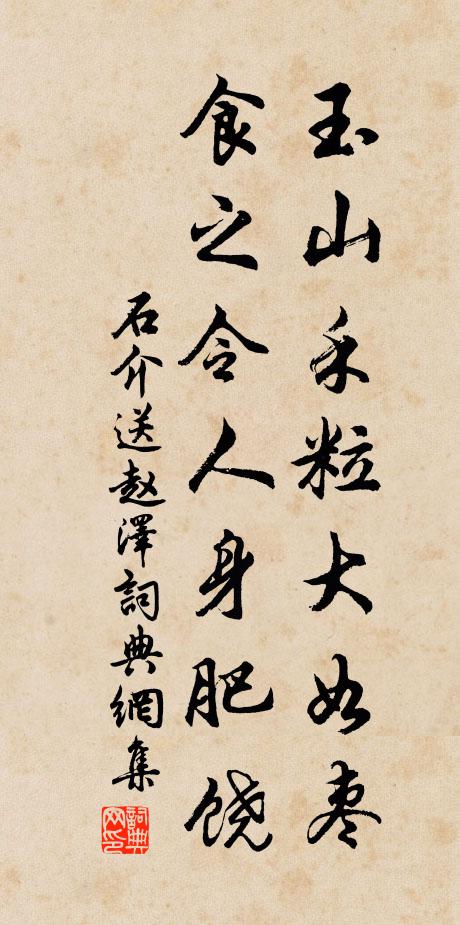 玉山禾粒大如枣
食之令人身肥饶
石介送赵澤詞典網集
詞典网印